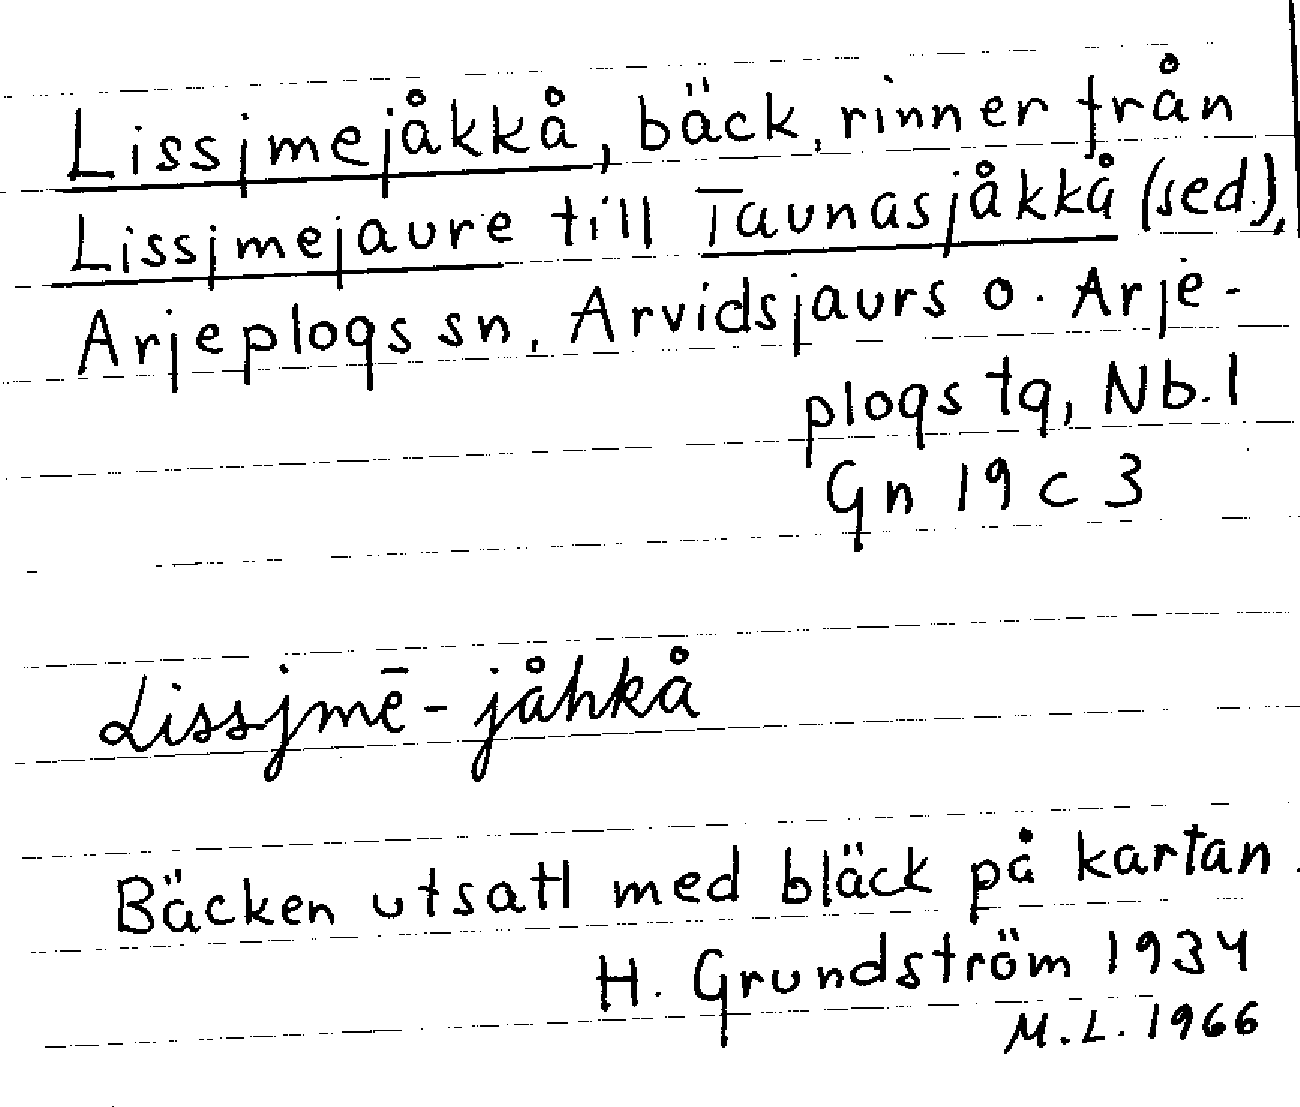 Lissjmejåkkå, bäck, rinner från
Lissjmejaure till Taunasjåkkå (sed.),
Arjeplogs sn, Arvidsjaurs o. Arje-
plogs tg, Nb. l
Gn 19 c 3
Lissjmē-jåhkå
Bäcken utsatt med bläck på kartan.
H. Grundström 1934
M.L. 1966